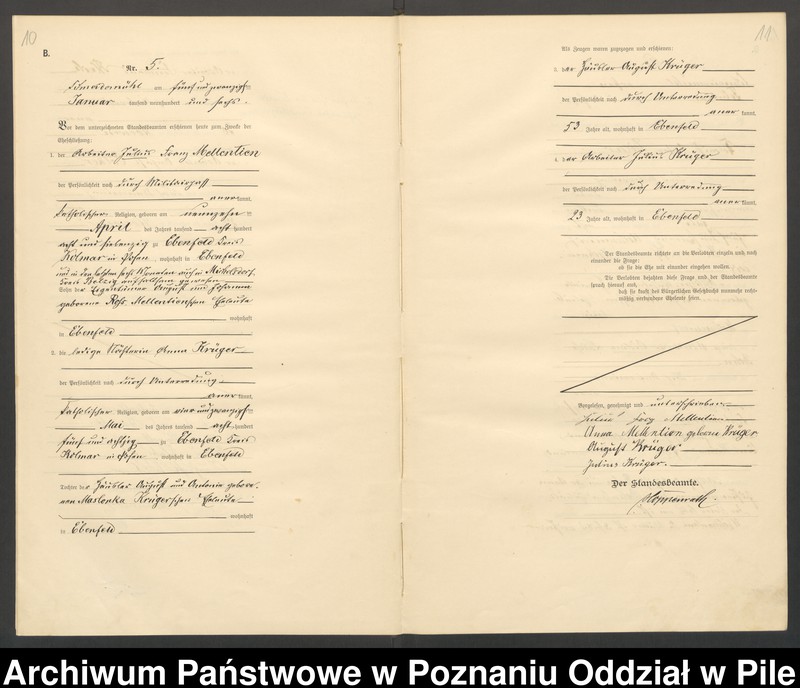 10
B.
Nr. 5.
Schneidemühl am fünf und zwanzigsten
Januar tausend neunhundert und sechs.
Vor dem unterzeichneten Standesbeamten erschienen heute zum Zweck der
Eheschließung:
1. der Arbeiter Julius Franz Mellentien
der Persönlichkeit nach durch Militairpaß
anerkannt,
katholischer Religion, geboren am neunzehnten
April des Jahres tausend achthundert
acht und siebenzig zu Ebenfeld Kreis
Kolmar in Posen, wohnhaft in Ebenfeld
und in den letzten sechs Monaten auch in
Kreis Belzig aufhaltsam gewesen
Sohn des Eigentümer August und Johanna
geborene Mellentienschen Eheleute
wohnhaft
in Ebenfeld
2. die ledige Anna Krüger
der Persönlichkeit nach durch Unterredung
anerkannt,
katholischer Religion, geboren am vier und zwanzigsten
Mai des Jahres tausend achthundert
fünf und achtzig zu Ebenfeld Kreis
Kolmar in Posen, wohnhaft in Ebenfeld
Tochter der Häusler August und Antonie gebore-
nen Maslonka Krügerschen Eheleute
wohnhaft
in Ebenfeld
11
Als Zeugen waren zugezogen und erschienen:
3. der Häusler August Krüger
der Persönlichkeit nach durch Unterredung
anerkannt,
53 Jahre alt, wohnhaft in Ebenfeld
4. der Arbeiter Julius Krüger
der Persönlichkeit nach durch Unterredung
anerkannt,
23 Jahre alt, wohnhaft in Ebenfeld
Der Standesbeamte richtete an die Verlobten einzeln und nach
einander die Frage:
ob sie die Ehe mit einander eingehen wollen.
Die Verlobten bejahten diese Frage und der Standesbeamte
sprach hierauf aus,
daß sie kraft des Bürgerlichen Gesetzbuchs nunmehr recht-
mäßig verbundene Eheleute seien.
Vorgelesen, genehmigt und unterschrieben
Julius Franz Mellentien
Anna Mellention geborene Krüger
August Krüger
Julius Krüger.
Der Standesbeamte.
Archiwum Państwowe w Poznaniu Oddział w Pile